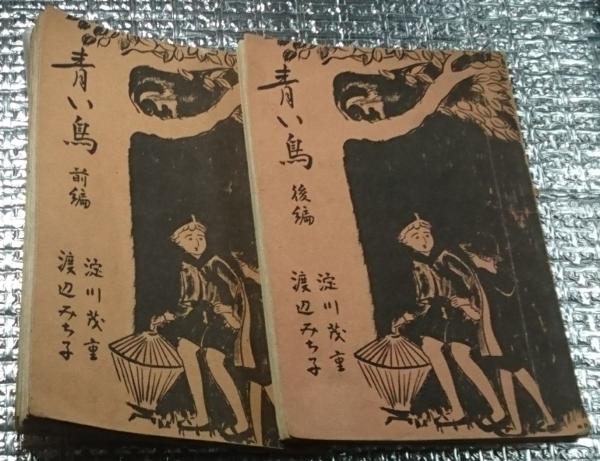 青い鳥
前編
淀川茂重
渡辺みち子
青い鳥
後編
淀川茂重
渡辺みち子